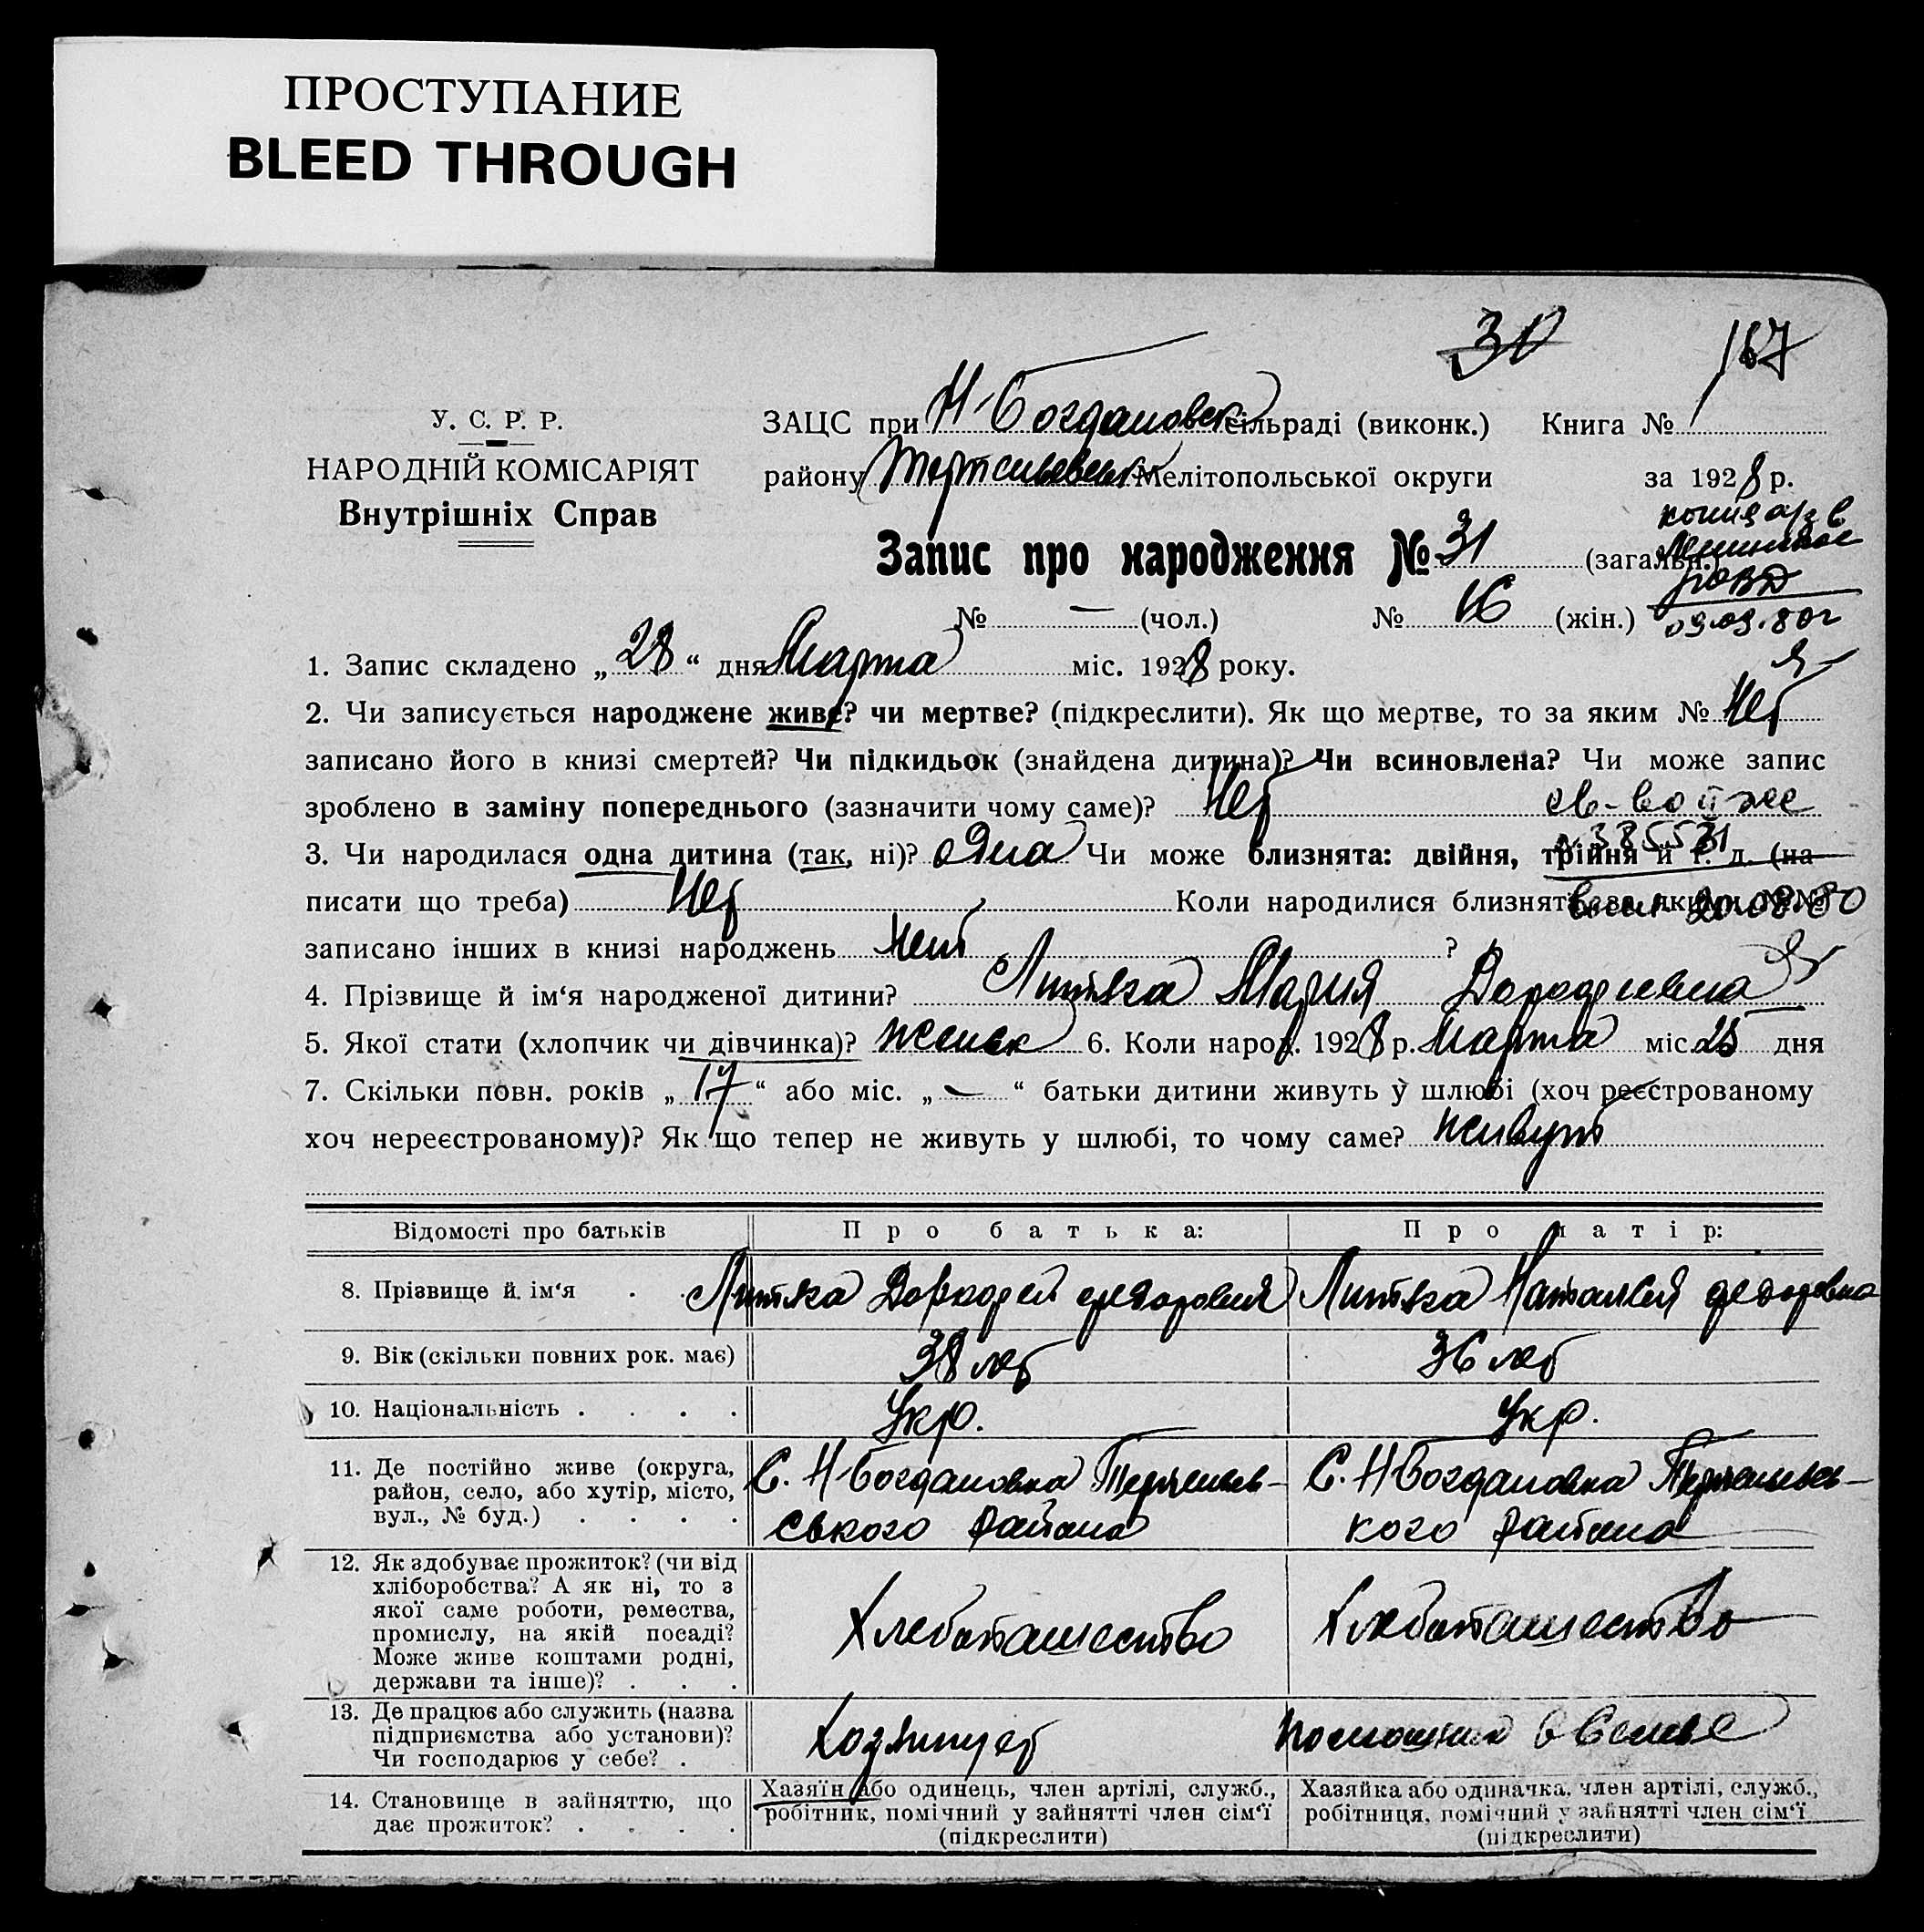 ПРОСТУПАНИЕ
BLEED THROUGH
30 167
У. С. Р. Р.
НАРОДНІЙ КОМІСАРІЯТ
Внутрішніх Справ
ЗАЦС при Н-Богдановск сільраді (виконк.) Книга №
району Мелітопольської округи за 1928 р.
копия а/з в
Запис про народження № 31 (загальн.)
РОВД
№ — (чол.) № 16 (жін.) 09.09.80г
1. Запис складено „ 28 “ дня Марта міс. 1928 року.
2. Чи записується народжене живе? чи мертве? (підкреслити). Як що мертве, то за яким № Нет
записано його в книзі смертей? Чи підкидьок (знайдена дитина)? Чи всиновлена? Чи може запис
зроблено в заміну попереднього (зазначити чому саме)? Нет св-во
3. Чи народилася одна дитина (так, ні)? одна Чи може близнята: двійня, трійня й т. д. (на-
385531
писати що треба) Нет Коли народилися близнята, за якими №№
20.08.80
записано інших в книзі народжень нет ?
4. Прізвище й ім‘я народженої дитини? Литяка Мария
5. Якої стати (хлопчик чи дівчинка)? женск 6. Коли народ. 1928 р. Марта міс. 25 дня
7. Скільки повн. років „ 17 “ або міс. „ — “ батьки дитини живуть у шлюбі (хоч реєстрованому
хоч нереєстрованому)? Як що тепер не живуть у шлюбі, то чому саме? живут
Відомості про батьків Про батька: Про матір:
8. Прізвище й ім‘я . . Литяка федорович Литяка Наталия федоровна
9. Вік (скільки повних рок. має) 38 лет 36 лет
10. Національність . . . . Укр. Укр.
11. Де постійно живе (округа,
район, село, або хутір, місто,
вул., № буд.) . . . .
С. Н-Богдановка
ського района
С. Н Богдановка
кого района
12. Як здобуває прожиток? (чи від
хліборобства? А як ні, то з
якої саме роботи, ремества,
промислу, на якій посаді?
Може живе коштами родні,
держави та інше)? . . .
Хлебопашество Хлебопашество
13. Де працює або служить (назва
підприємства або установи)?
Чи господарює у себе? .
Хозяинует в семье
14. Становище в зайняттю, що
дає прожиток? . . . .
Хазяїн або одинець, член артілі, служб.,
робітник, помічний у зайнятті член сім‘ї
(підкреслити)
Хазяйка або одиначка, член артілі, служб.,
робітниця, помічний у зайнятті член сім‘ї
(підкреслити)